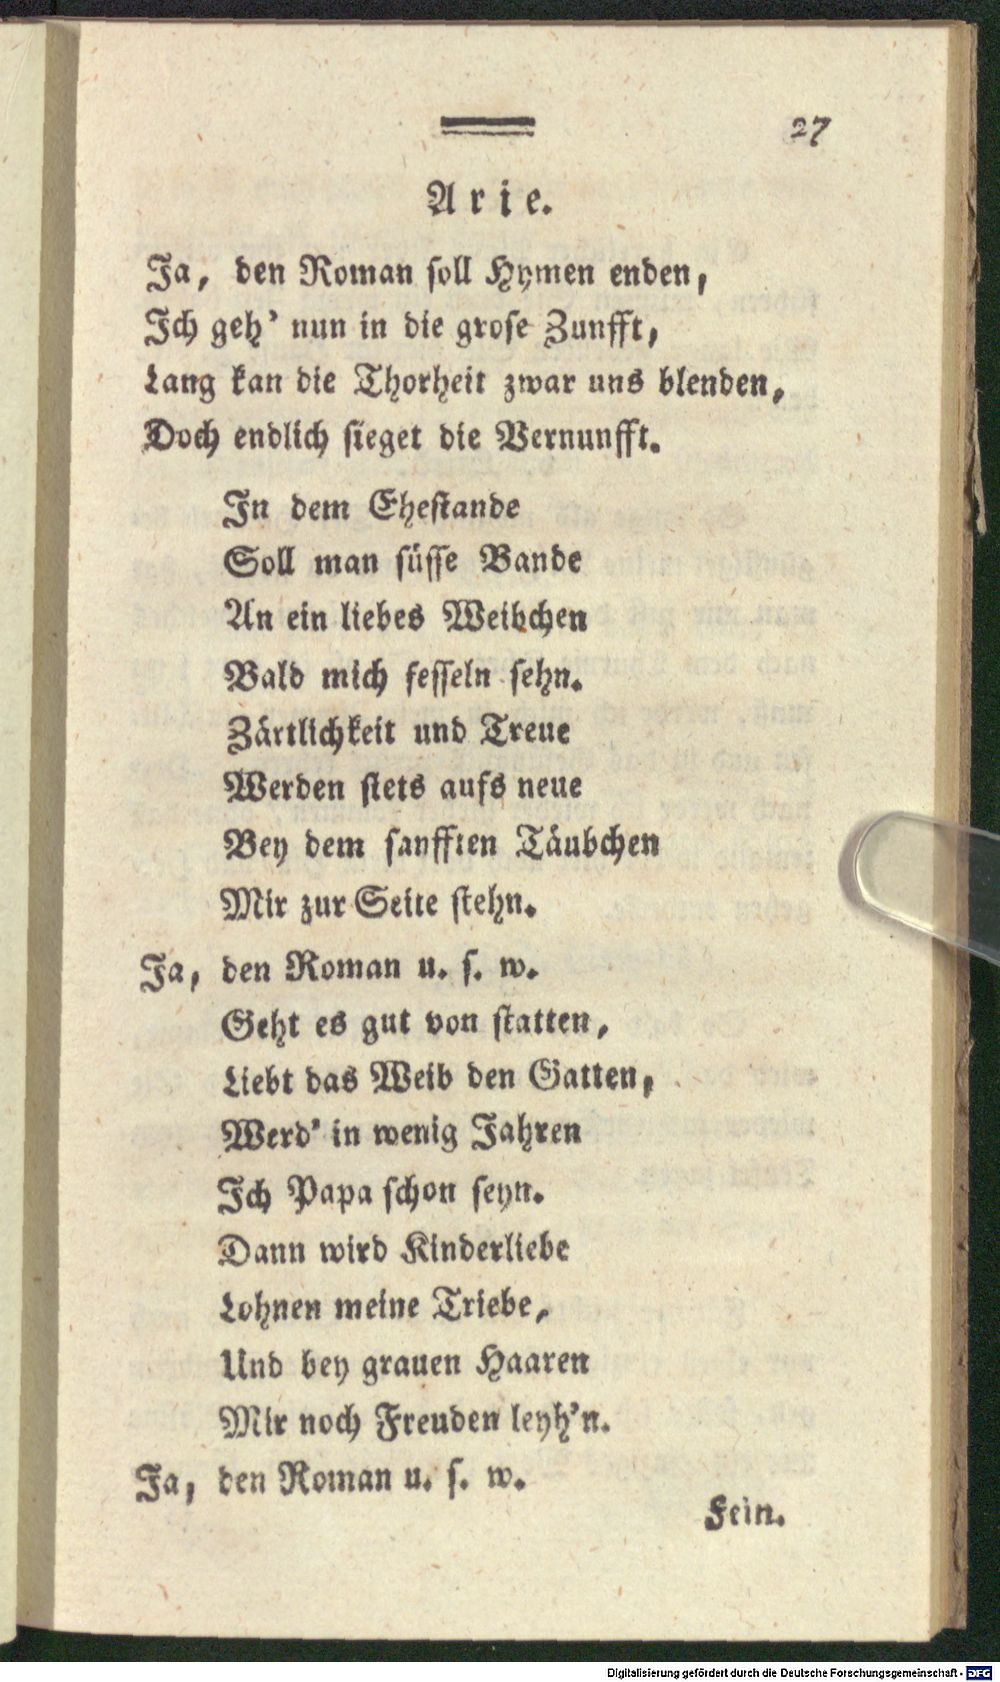 27
Arie.
Ja, den Roman soll Hymen enden,
Ich geh' nun in die grose Zunfft,
Lang kan die Thorheit zwar uns blenden,
Doch endlich sieget die Vernunfft.
In dem Ehestande
Soll man süsse Bande
An ein liebes Weibchen
Bald mich fesseln sehn.
Zärtlichkeit und Treue
Werden stets aufs neue
Bey dem sanfften Täubchen
Mir zur Seite stehn.
Ja, den Roman u. s. w.
Geht es gut von statten,
Liebt das Weib den Gatten,
Werd' in wenig Jahren
Ich Papa schon seyn.
Dann wird Kinderliebe
Lohnen meine Triebe,
Und bey grauen Haaren
Mir noch Freuden leyh'n.
Ja, den Roman u. s. w.
Fein.
Digitalisierung gefördert durch die Deutsche Forschungsgemeinschaft - DFG